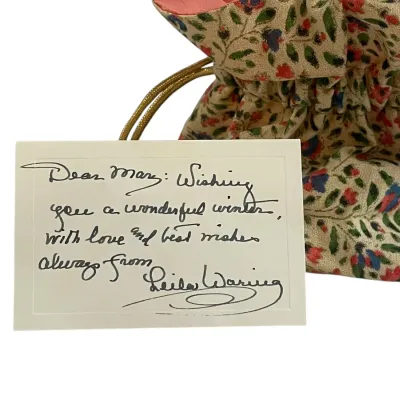 Dear Mary: Wishing
you a wonderful winter,
with love and best wishes
always from
Leila Waring